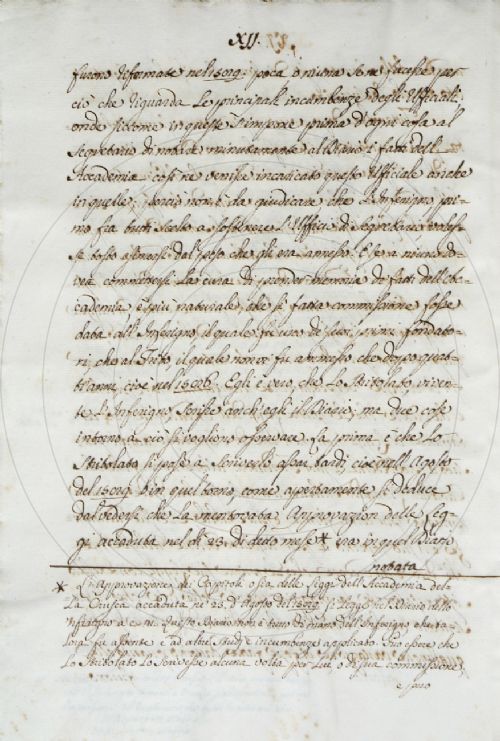 XII.
furono riformate nel 1589: poca o niuna se ne facesse per
ciò che riguarda le principali incumbenze degli Ufficiali
onde siccome in queste s'impone prima d'ogni cosa al
Segretario di notare minutamente al Diario i fatti dell'
Accademia: così ne venisse incaricato questo Ufficiale anche
in quelle; perciò non è da giudicare che l'Inferigno pri-
mo fra tutti scelto a sostenere l'Ufficio di Segretario volesse
sì tosto esimersi dal peso che gli era annesso. E se a niuno do-
vea commettersi la cura di prender memoria de' fatti dell'Ac-
cademia è più naturale, che sì fatta commissione fosse
data all'Inferigno, il quale fu uno de' primi fondato-
ri, che al Trito il quale non vi fu ammesso che dopo quat-
tr'anni, cioè nel 1586. Egli è vero, che lo Stritolato viven-
te l'Inferigno scrisse anch'egli il Diario; ma due cose
intorno a ciò si vogliono osservare. La prima è che lo
Stritolato si pose a scriverlo assai tardi, cioè nell'Agosto
del 1589. in quel torno, come apertamente si deduce
dal vedersi, che la mentovata Approvazion delle Leg-
gi accaduta nel dì 23. di detto mese * era in quel Diario
nobata
* L'Approvazione de' Capitoli o sia delle Leggi dell'Accademia del-
la Crusca accaduta a' 23. d'Agosto del 1589. si legge nel Diario dello
Inferigno a c. Questo Diario non è tutto di mano dell'Inferigno che ta-
lora fu assente e ad altri Studj e incumbenze applicato. Può essere che
lo Stritolato lo scrivesse alcuna volta per lui, o di sua commissione,